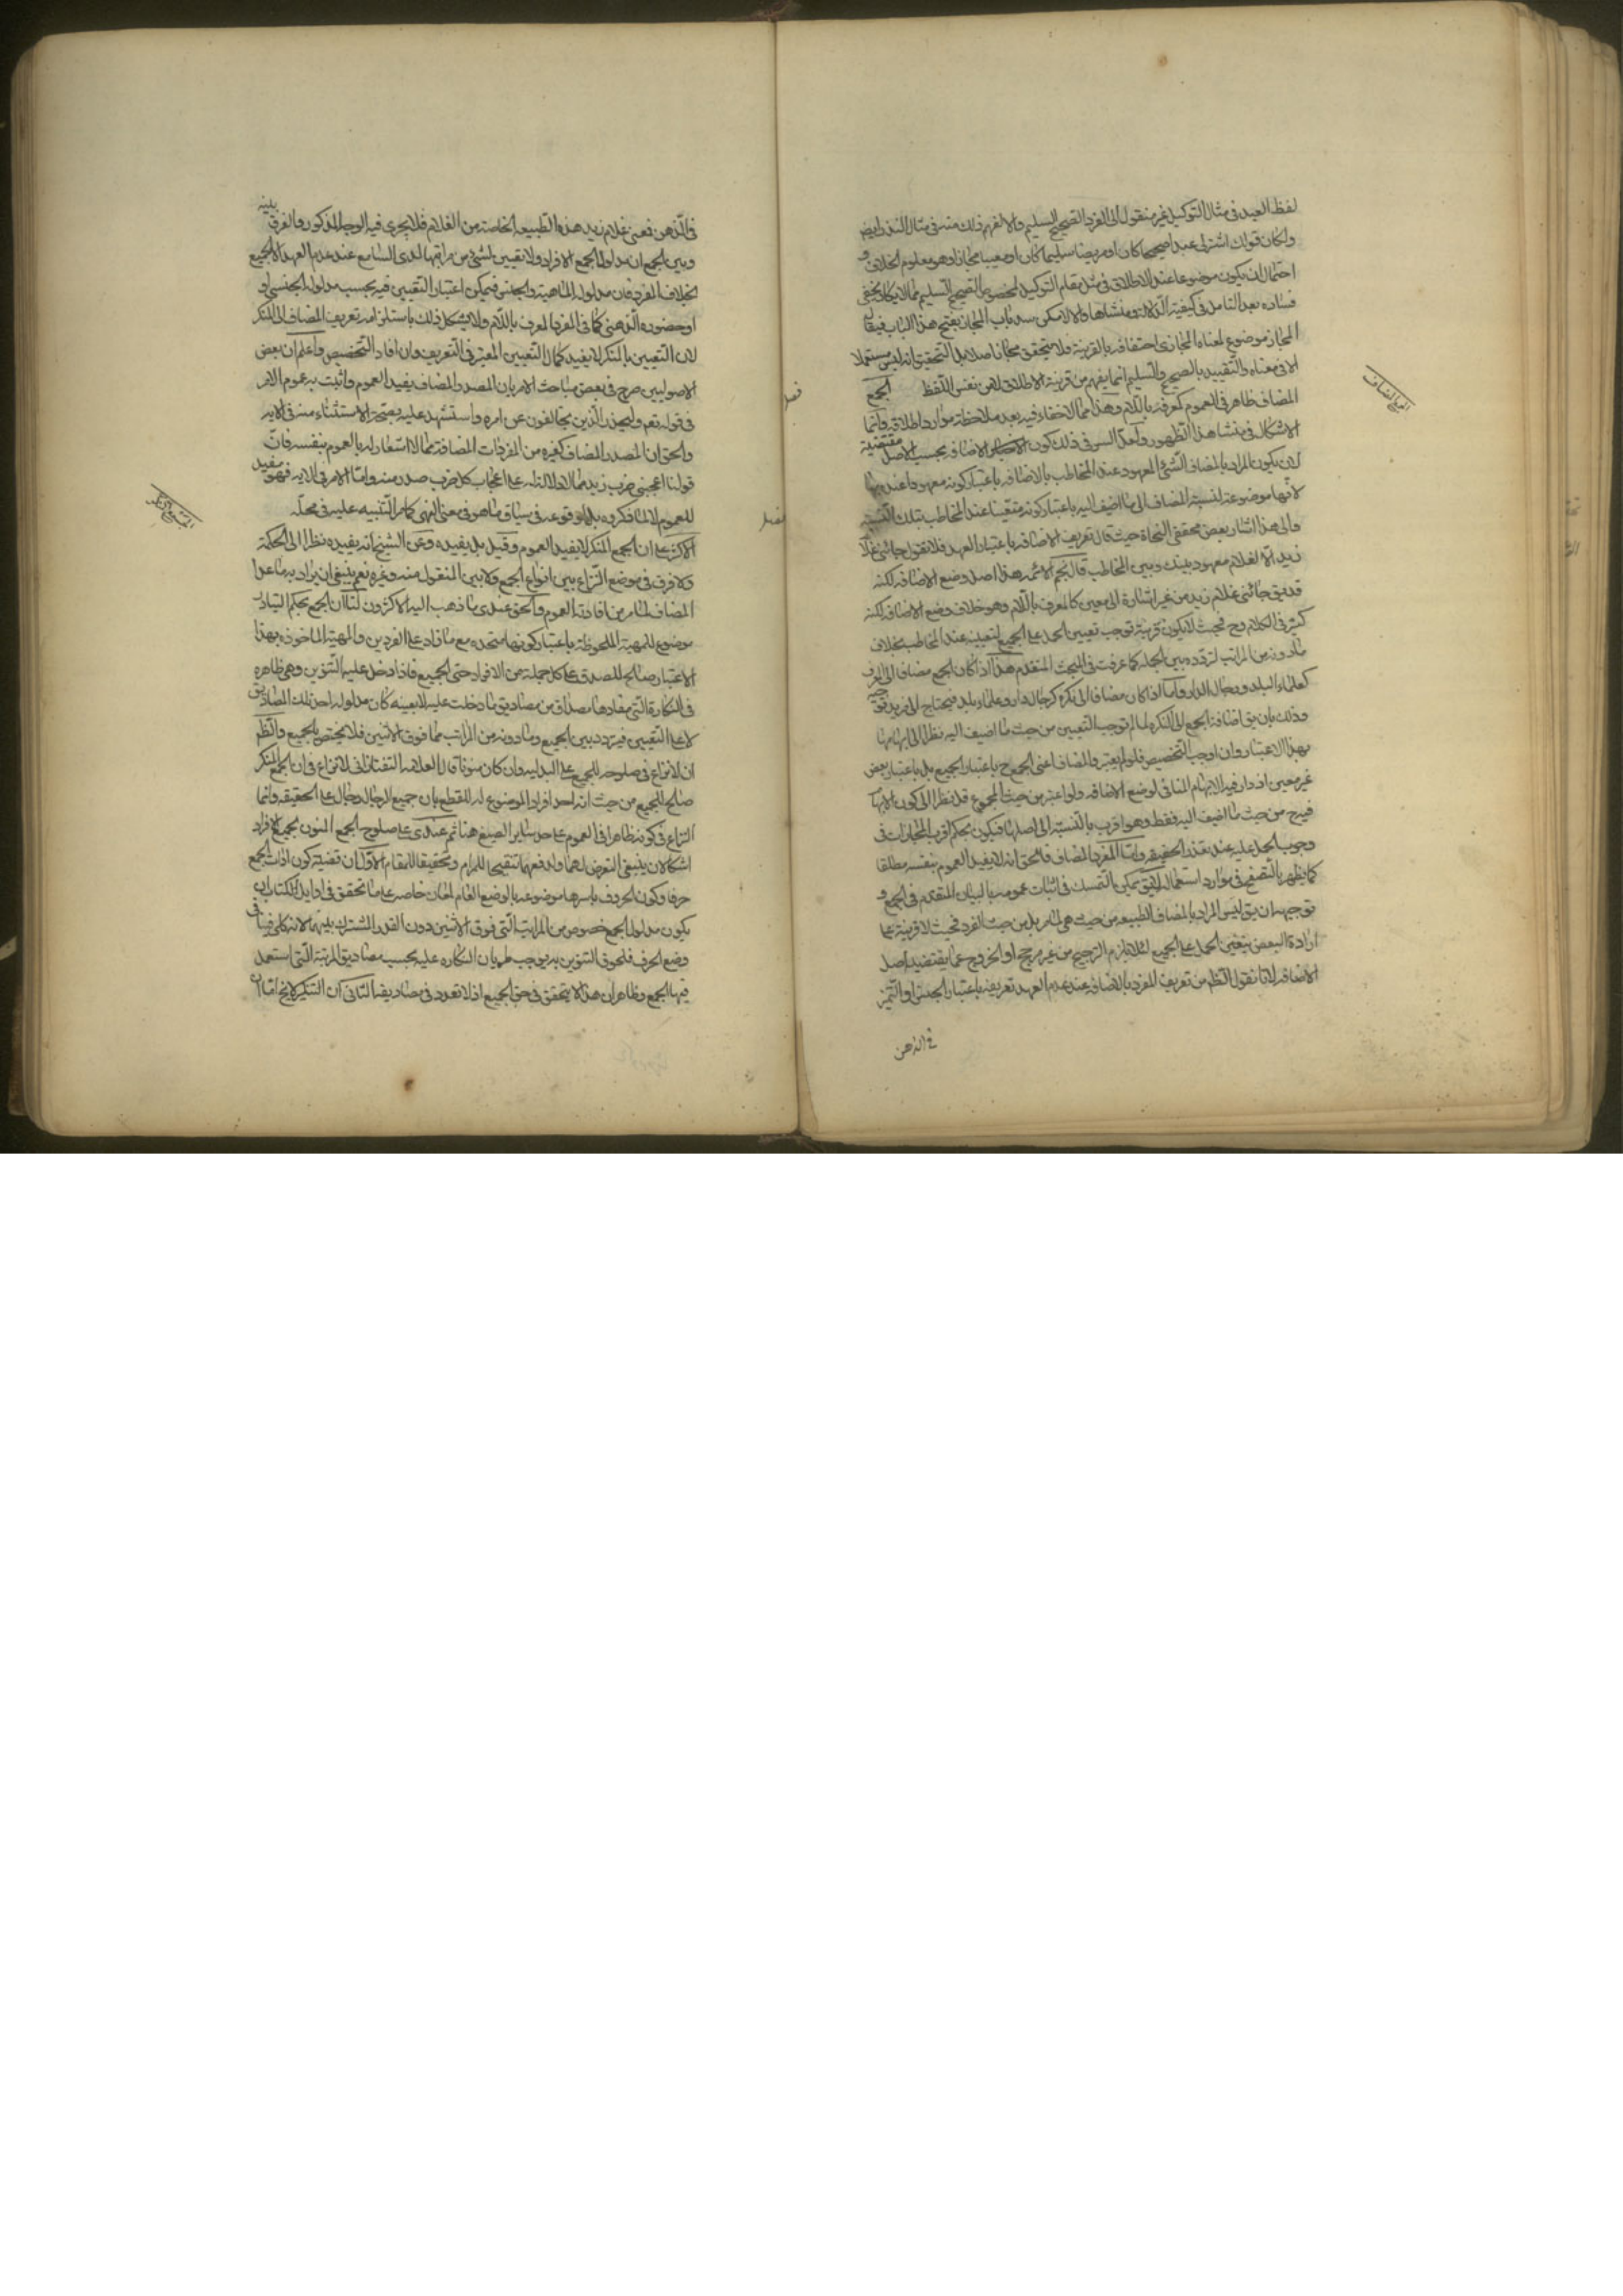 لفظ العبد فى مثال التوكيل غير منقول الى الفرد الصحيح السليم والا لفهم ذلك منه فى مثال النذر ايضا
ولكان قولك اشتر لى عبدا صحيحا كان او مريضا سليما كان او معيبا مجازا وهو معلوم الخلاف و
احتمال ان يكون موضوعا عند الاطلاق فى مثل مقام التوكيل لخصوص الصحيح السليم مما لا يكاد يخفى
فساده بعد التامل فى كيفية الدلالة ومنشاها والا لامكن سد باب المجاز بفتح هذا الباب فيقال
المجاز موضوع لمعناه المجازى احتفافه بالقرينة فلا يتحقق مجاز اصلا بل التحقيق انه ليس مستعملا
الا فى معناه والتقييد بالصحيح والتسليم انما يفهم من قرينة الاطلاق لا من نفس اللفظ الجمع
فصل
الجمع المضاف
المضاف ظاهر فى العموم كمعرفة باللام وهذا مما لا خفاء فيه بعد ملاحظة موارد اطلاقه وانما
الاشكال فى منشا هذا الظهور ولعل السر فى ذلك كون الاضافة بحسب الاصل مقتضية
لان يكون المراد بالمضاف الشىء المعهود عند المخاطب بالاضافة باعتبار كونه معهودا عند
لانها موضوعة لنسبة المضاف الى ما اضيف اليه باعتبار كونه متعينا عند المخاطب بتلك النسبة
والى هذا اشار بعض محققى النحاة حيث قال تعريف الاضافة باعتبار العهد فلا تقول جائنى غلام
زيد الا لغلام معهود بينك وبين المخاطب قال نجم الائمه هذا اصل وضع الاضافه لكنه
قد يق جائنى غلام زيد من غير اشارة الى معين كالمعرف باللام وهو خلاف وضع الاضافه لكنه
كثير فى الكلام وح فحيث لا يكون قرينة توجب تعيين الحمل على الجميع لتعينه عند المخاطب بخلاف
ما دونه من المراتب لتردده بين الجمله كما عرفت فى المبحث المتقدم هذا اذا كان الجمع مضافا الى المعرف
كعلماء البلد ورجال الدار واما اذا كان مضافا الى نكره كرجال دار وعلماء بلد فيحتاج الى مزيد توجيه
وذلك بان يق اضافة الجمع الى النكره لما لم توجب التعيين من حيث ما اضيف اليه نظرا الى ابهامها
بهذا الاعتبار وان اوجب التخصيص فلو لم يعتبر والمضاف اعنى الجمع ح باعتبار الجميع بل باعتبار بعض
غير معين اذ دار فيه الابهام المنافى لوضع الاضافه ولو اعتبر من حيث المجموع قل نظرا الى كون الابهام
فيه ح من حيث ما اضيف اليه فقط وهو اقرب بالنسبة الى اصلها فيكون بحكم اقرب المجازات فى
وجوب الحمل عليه عند تعذر الحقيقه واما المفرد المضاف فالحق انه لا يفيد العموم بنفسه مطلقا
كما يظهر بالتصفح فى موارد استعماله لا يق يمكن التمسك فى اثبات عمومه بالبيان المتقدم فى الجمع و
توجيهه ان يق ليس المراد بالمضاف الطبيعه من حيث هى لما مر بل من حيث الفرد فحيث لا قرينة على
ارادة البعض يتعين الحمل على الجميع لئلا يلزم الترجيح من غير مرجح او الخروج عما يقتضيه اصل
الاضافه لانا نقول الظ من تعريف المفرد بالاضافه عند عدم العهد تعريفه باعتبار الجنس او التميز
فى الذهن
فى الذهن فمعنى غلام زيد هذه الطبيعه الخاصة من الغلام فلا يجرى فيه الوجه المذكور والفرق بينه
وبين الجمع ان مدلول الجمع الافراد ولا تعيين لشىء من مراتبها لدى السامع عند عدم العهد الا الجميع
بخلاف المفرد فان مدلوله الماهية والجنس فيمكن اعتبار التعيين فيه بحسب مدلوله الجنسى او
او حضوره الذهنى كما فى المفرد المعرف باللام ولا يشكل ذلك باستلزامه تعريف المضاف الى المنكر
لان التعيين بالمنكر لا يفيد كمال التعيين المعتبر فى التعريف وان افاد التخصيص واعلم ان بعض
الاصوليين صرح فى بعض مباحث الامر بان المصدر المضاف يفيد العموم واثبت به عموم الامر
فى قوله تعم وليحذر الذين يخالفون عن امره واستشهد عليه بصحة الاستثناء منه فى الايه
والحق ان المصدر المضاف كغيره من المفردات المضافة مما لا اشعار له بالعموم بنفسه فان
قولنا اعجبنى ضرب زيد مما لا دلالة له على اعجاب كل ضرب صدر منه واما الامر فى الايه فهو مفيد
للعموم لا لما ذكروه بل لوقوعه فى سياق ما هو فى معنى النهى كما مر التنبيه عليه فى محله
فصل
الجمع المنكر
الاكثر على ان الجمع المنكر لا يفيد العموم وقيل بل يفيده وعن الشيخ انه يفيده نظرا الى الحكمة
ولا فرق فى موضع النزاع بين انواع الجمع ولا بين المنقول منه وغيره نعم ينبغى ان يراد به ما عدا
المضاف لما مر من افادته العموم والحق عندى ما ذهب اليه الاكثرون لنا ان الجمع بحكم التبادر
موضوع للمهية الملحوظة باعتبار كونها متحده مع ما زاد على الفردين والمهية الماخوذه بهذا
الاعتبار صالح للصدق على كل جملة من الافراد حتى الجميع فاذا دخل عليه التنوين وهى ظاهره
فى النكارة التى مفادها مصداق من مصاديق ما دخلت عليه لا بعينه كان مدلوله احد تلك المصاديق
لا على التعيين فيتردد بين الجميع وما دونه من المراتب مما فوق الاثنين فلا يختص بالجميع والظم
ان لا نزاع فى صلوحه للجميع على البدليه وان كان منونا قال العلامه التفتازانى لا نزاع فى ان الجمع المنكر
صالح للجميع من حيث انه احد افراد الموضوع له للقطع بان جميع الرجال رجال على الحقيقه وانما
النزاع فى كونه ظاهرا فى العموم على حد سائر الصيغ هنا ثم عندى على صلوح الجمع المنون لجميع الافراد
اشكالان ينبغى التعرض لهما ولدفعهما تنقيحا للمرام وتحقيقا للمقام الاول ان قضية كون اداة الجمع
حرفا وكون الحروف باسرها موضوعه بالوضع العام لمعان خاصه على ما تحقق فى اوايل الكتاب ان
يكون مدلول الجمع خصوص من المراتب التى فوق الاثنين دون القدر المشترك بينهما لانه كلى فينافى
وضع الحرف فلحوق التنوين به يوجب طريان النكاره عليه بحسب مصاديق المرتبة التى استعمل
فيها الجمع وظاهر ان هذا لا يتحقق فى حق الجميع اذ لا تعدد فى مصاديقه الثانى ان التنكير لا يخ اما ان